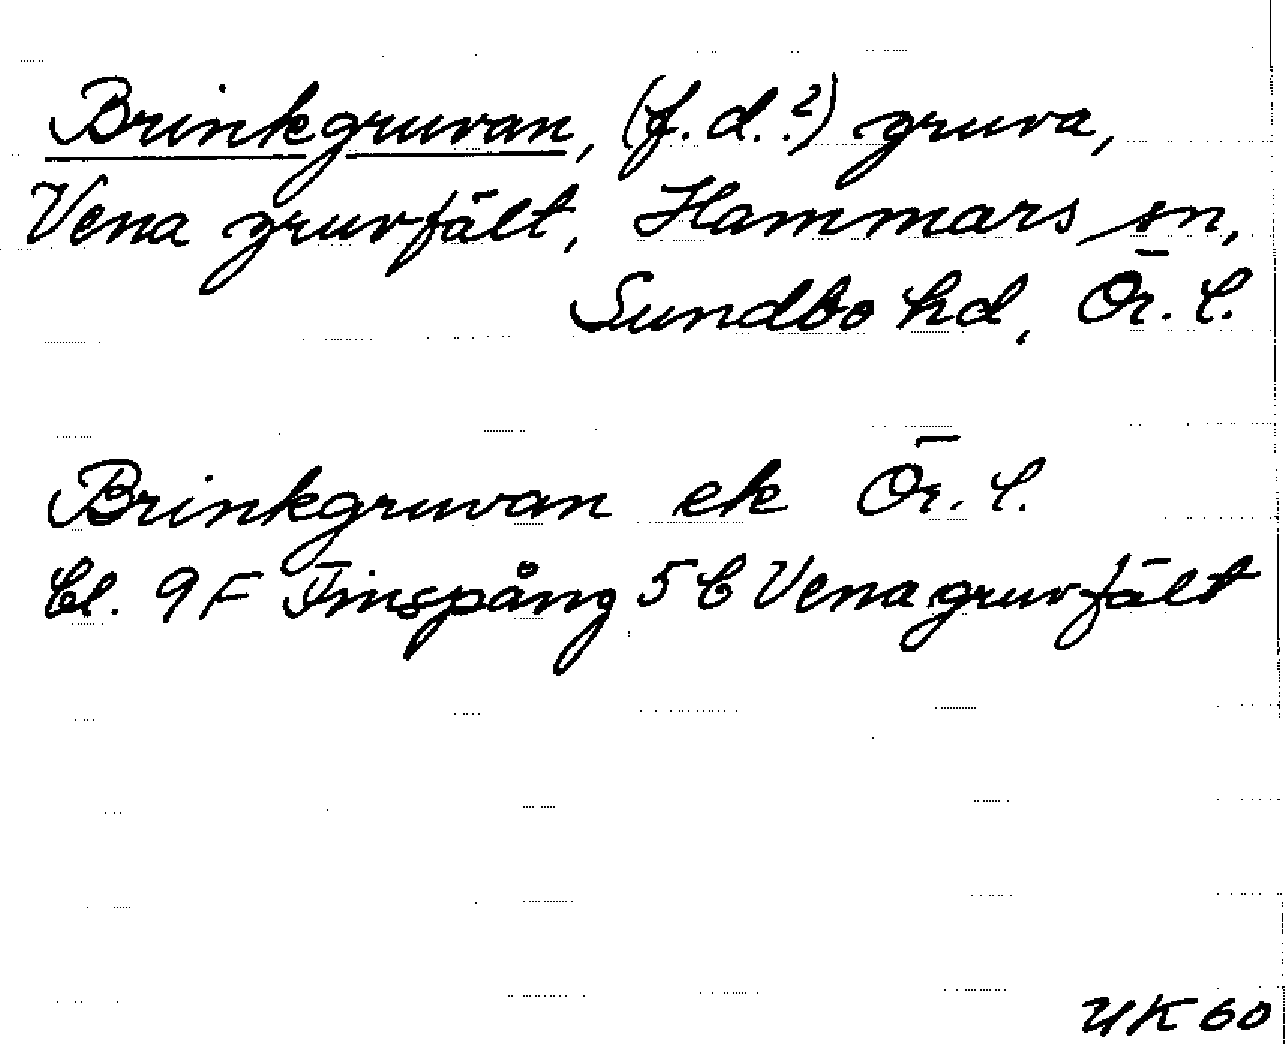 Brinkgruvan, (f.d.?) gruva,
Vena gruvfält, Hammars sn,
Sundbo hd, Ör. l.
Brinkgruvan ek Ör. l.
Bl. 9 F Finspång 5 b Vena gruvfält
UK 60